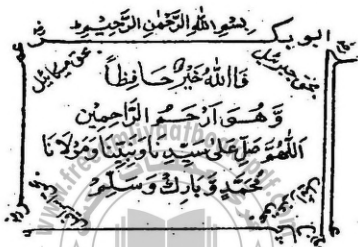 بِسْمِ اللهِ الرَّحْمٰنِ الرَّحِيْمِ
ابوبکر
بحق جبرئیل
بحق میکائیل
فَاللهُ خَيْرٌ حَافِظًا
وَّهُوَ اَرْحَمُ الرَّاحِمِيْنَ
اَللّٰهُمَّ صَلِّ عَلٰى سَيِّدِنَا وَنَبِيِّنَا وَمَوْلَانَا
مُحَمَّدٍ وَّبَارِكْ وَسَلِّمْ